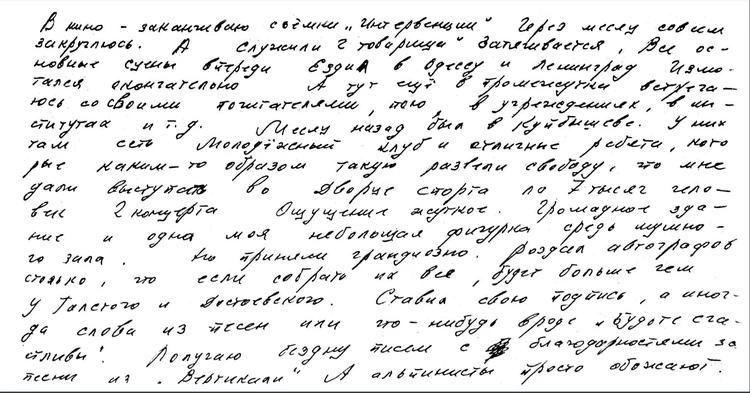 В кино - заканчиваю съёмки „Интервенции" Через месяц совсем
закруглюсь. А „служили 2 товарища" затягивается, Все ос-
новные сцены впереди Ездил в Одессу и Ленинград Измо-
тался окончательно А тут ещё в промежутки встреча-
юсь со своими почитателями, пою, в учреждениях, в ин-
ститутах и т.д. Месяц назад был в Куйбышеве. У них
там есть Молодёжный клуб и отличные ребята, кото
рые каким-то образом такую развели свободу, что мне
дали выступать во Дворце спорта по 7 тысяч чело-
век 2 концерта Ощущение жуткое. Громадное зда-
ние и одна моя небольшая фигурка средь шумно-
го зала. Но приняли грандиозно. Раздал автографов
столько, что если собрать их все, будет больше чем
у Толстого и Достоевского. Ставил свою подпись, а иног-
да слова из песен или что-нибудь вроде „Будьте сча-
стливы". Получаю бездну писем с благодарностями за
песни из „Вертикали" А альпинисты просто обожают.